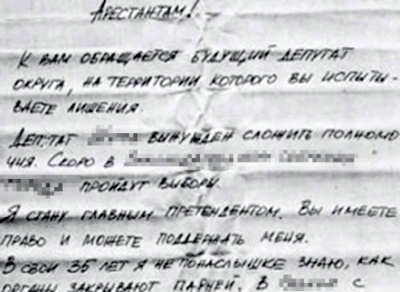 Арестантам!
К вам обращается будущий депутат
округа, на территории которого вы испыты-
ваете лишения.
Депутат вынужден сложить полномо
чия. Скоро в
пройдут выборы.
Я стану главным претендентом. Вы имеете
право и можете поддержать меня.
В свои 35 лет я не понаслышке знаю, как
органы закрывают парней. В с